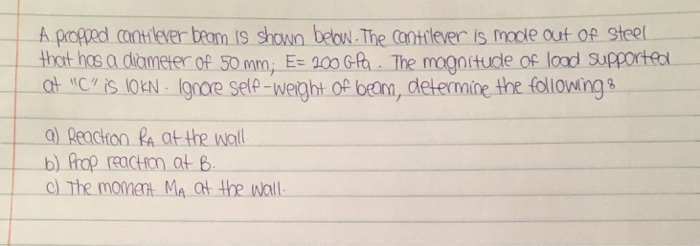 A propped cantilever beam is shown below. The cantilever is made out of steel
that has a diameter of 50 mm; E= 200 GPa. The magnitude of load supported
at "C" is 10KN. Ignore self-weight of beam, determine the following:
a) Reaction RA at the wall.
b) Prop reaction at B.
c) The moment MA at the wall.